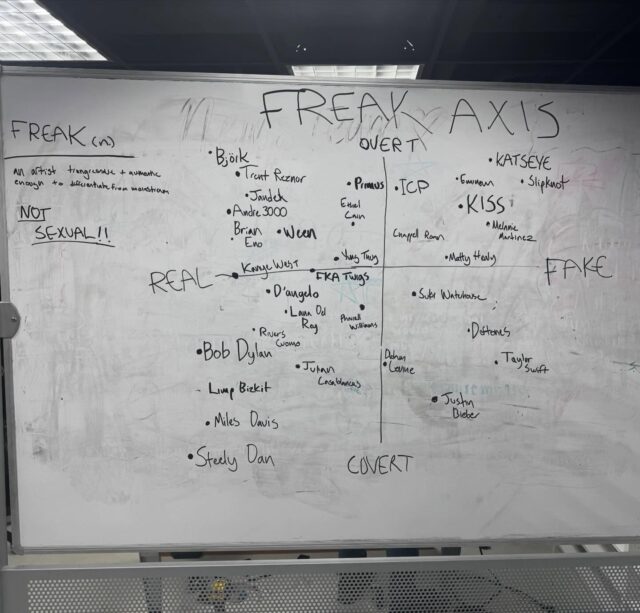 FREAK AXIS
FREAK (n)
an artist transgressive + authentic
enough to differentiate from mainstream
NOT
SEXUAL!!
OVERT
REAL
FAKE
COVERT
Björk
Trent Reznor
Jandek
Andre 3000
Brian
Eno
Ween
Primus
Ethel
Cain
Yung Thug
Kanye West
FKA Twigs
ICP
KATSEYE
Eminem
Slipknot
KISS
Melanie
Martinez
Chappel Roan
Matty Healy
D'angelo
Lana Del
Rey
Pharell
Williams
Rivers
Cuomo
Bob Dylan
Julian
Casablancas
Limp Bizkit
Miles Davis
Steely Dan
Suki Waterhouse
Deftones
Levine
Taylor
Swift
Justin
Bieber